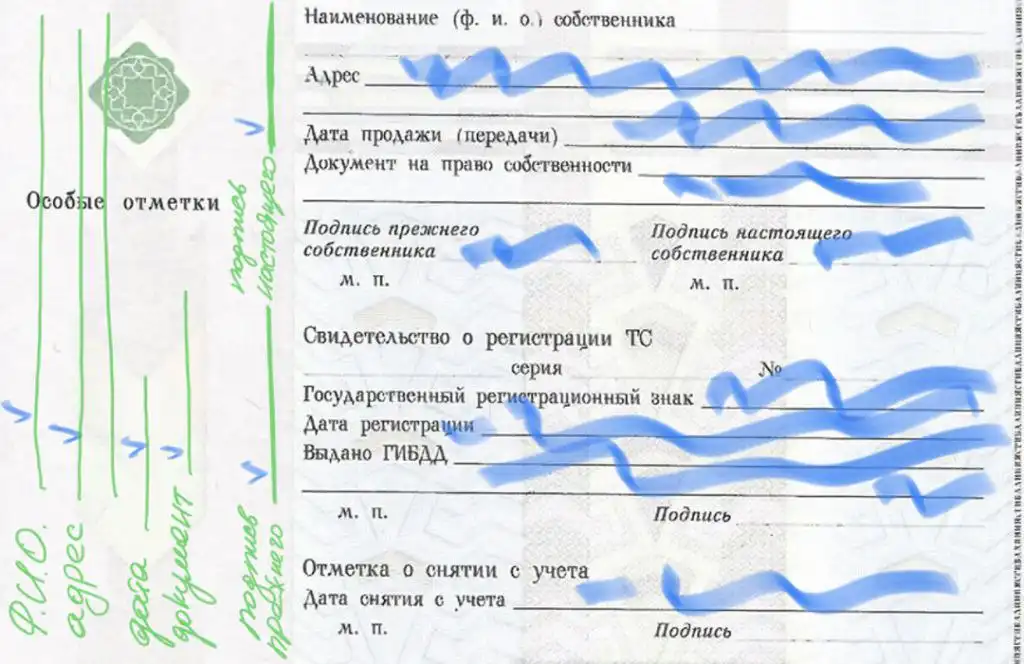 Наименование (ф. и. о.) собственника
Адрес
Дата продажи (передачи)
Документ на право собственности
Особые отметки
Подпись прежнего собственника
Подпись настоящего собственника
м. п.
м. п.
Свидетельство о регистрации ТС
серия №
Государственный регистрационный знак
Дата регистрации
Выдано ГИБДД
м. п.
Подпись
Отметка о снятии с учета
Дата снятия с учета
м. п.
Подпись
Ф.И.О.
адрес
дата
документ
подпись прежнего
подпись настоящего